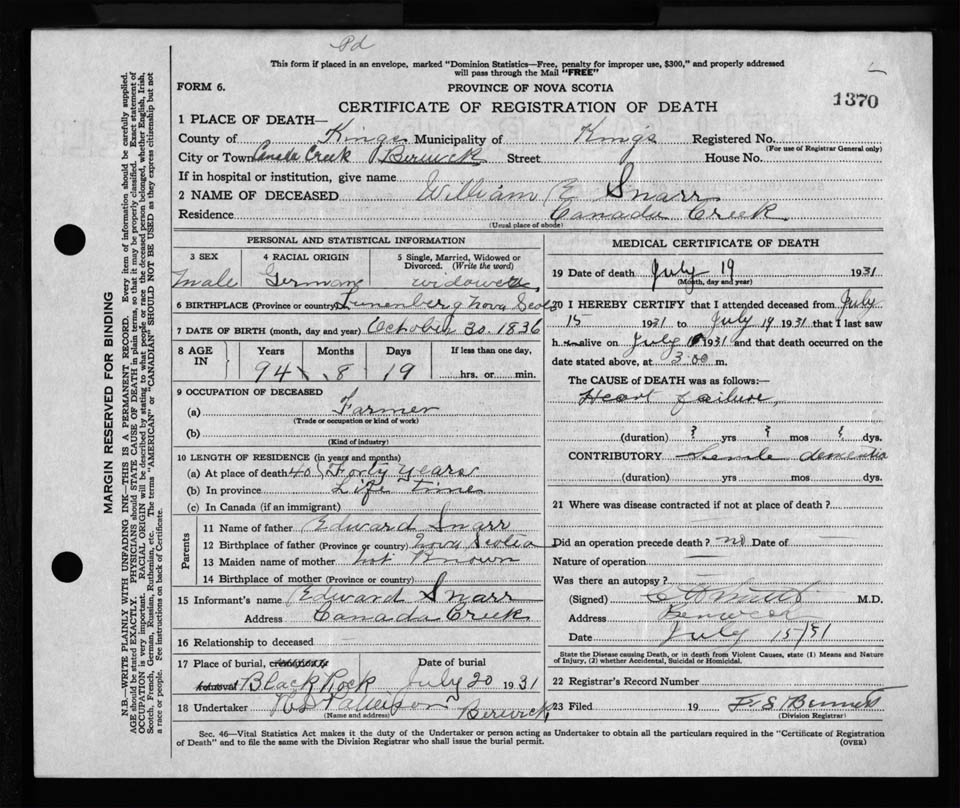 Pd
This form if placed in an envelope, marked "Dominion Statistics—Free, penalty for improper use, $300," and properly addressed
will pass through the Mail "FREE"
FORM 6.
PROVINCE OF NOVA SCOTIA
1370
CERTIFICATE OF REGISTRATION OF DEATH
1 PLACE OF DEATH—
County of Kings Municipality of Kings Registered No.
(For use of Registrar General only)
City or Town Canada Creek Berwick Street House No.
If in hospital or institution, give name
2 NAME OF DECEASED William E Snarr
Residence Canada Creek
(Usual place of abode)
MARGIN RESERVED FOR BINDING
N.B.—WRITE PLAINLY WITH UNFADING INK—THIS IS A PERMANENT RECORD. Every item of information should be carefully supplied.
AGE should be stated EXACTLY. PHYSICIANS should STATE CAUSE OF DEATH in plain terms, so that it may be properly classified. Exact statement of
OCCUPATION is very important. RACIAL ORIGIN will be described by stating to what people or race the deceased person belonged, whether English, Irish,
Scotch, French, German, Russian, Ruthenian, etc. The terms "AMERICAN" or "CANADIAN" SHOULD NOT BE USED as they express citizenship but not
a race or people. Fee instructions on back of Certificate.
PERSONAL AND STATISTICAL INFORMATION
3 SEX
Male
4 RACIAL ORIGIN
German
5 Single, Married, Widowed or
Divorced. (Write the word)
widower
6 BIRTHPLACE (Province or country) Lunenberg Nova Scotia
7 DATE OF BIRTH (month, day and year) October 30. 1836
8 AGE IN Years Months Days If less than one day,
94 8 19 hrs. or min.
9 OCCUPATION OF DECEASED
(a) Farmer
(Trade or occupation or kind of work)
(b)
(Kind of industry)
10 LENGTH OF RESIDENCE (in years and months)
(a) At place of death 40 Forty years
(b) In province Life time
(c) In Canada (if an immigrant)
Parents
11 Name of father Edward Snarr
12 Birthplace of father (Province or country) Nova Scotia
13 Maiden name of mother not Known
14 Birthplace of mother (Province or country)
15 Informant's name Edward Snarr
Address Canada Creek
16 Relationship to deceased —
17 Place of burial, cremation or removal Black Rock
Date of burial July 20 1931
18 Undertaker Berwick
(Name and address)
MEDICAL CERTIFICATE OF DEATH
19 Date of death July 19 1931
(Month, day and year)
20 I HEREBY CERTIFY that I attended deceased from July
15 1931 to July 19 1931 that I last saw
h alive on July 1931 and that death occurred on the
date stated above, at 3:00 m.
The CAUSE of DEATH was as follows:—
Heart failure,
(duration) ? yrs ? mos ? dys.
CONTRIBUTORY Senile dementia
(duration) yrs. mos. dys.
21 Where was disease contracted if not at place of death?
Did an operation precede death? no Date of —
Nature of operation —
Was there an autopsy? —
(Signed) M.D.
Address Berwick
Date July 15/31
State the Disease causing Death, or in death from Violent Causes, state (1) Means and Nature
of Injury, (2) whether Accidental, Suicidal or Homicidal.
22 Registrar's Record Number
23 Filed 19 F. S. Bennett
(Division Registrar)
Sec. 46—Vital Statistics Act makes it the duty of the Undertaker or person acting as Undertaker to obtain all the particulars required in the "Certificate of Registration
of Death" and to file the same with the Division Registrar who shall issue the burial permit.
(OVER)